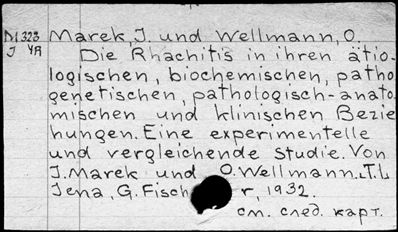 D1323 Marek, J. und Wellmann, O.
J 4A Die Rhachitis in ihren ätio-
logischen, biochemischen, patho
genetischen, pathologisch-anato-
mischen und klinischen Bezie
hungen. Eine experimentelle
und vergleichende Studie. Von
J. Marek und O. Wellmann. T.1.
Jena, G. Fisch r, 1932.
см. след. карт.